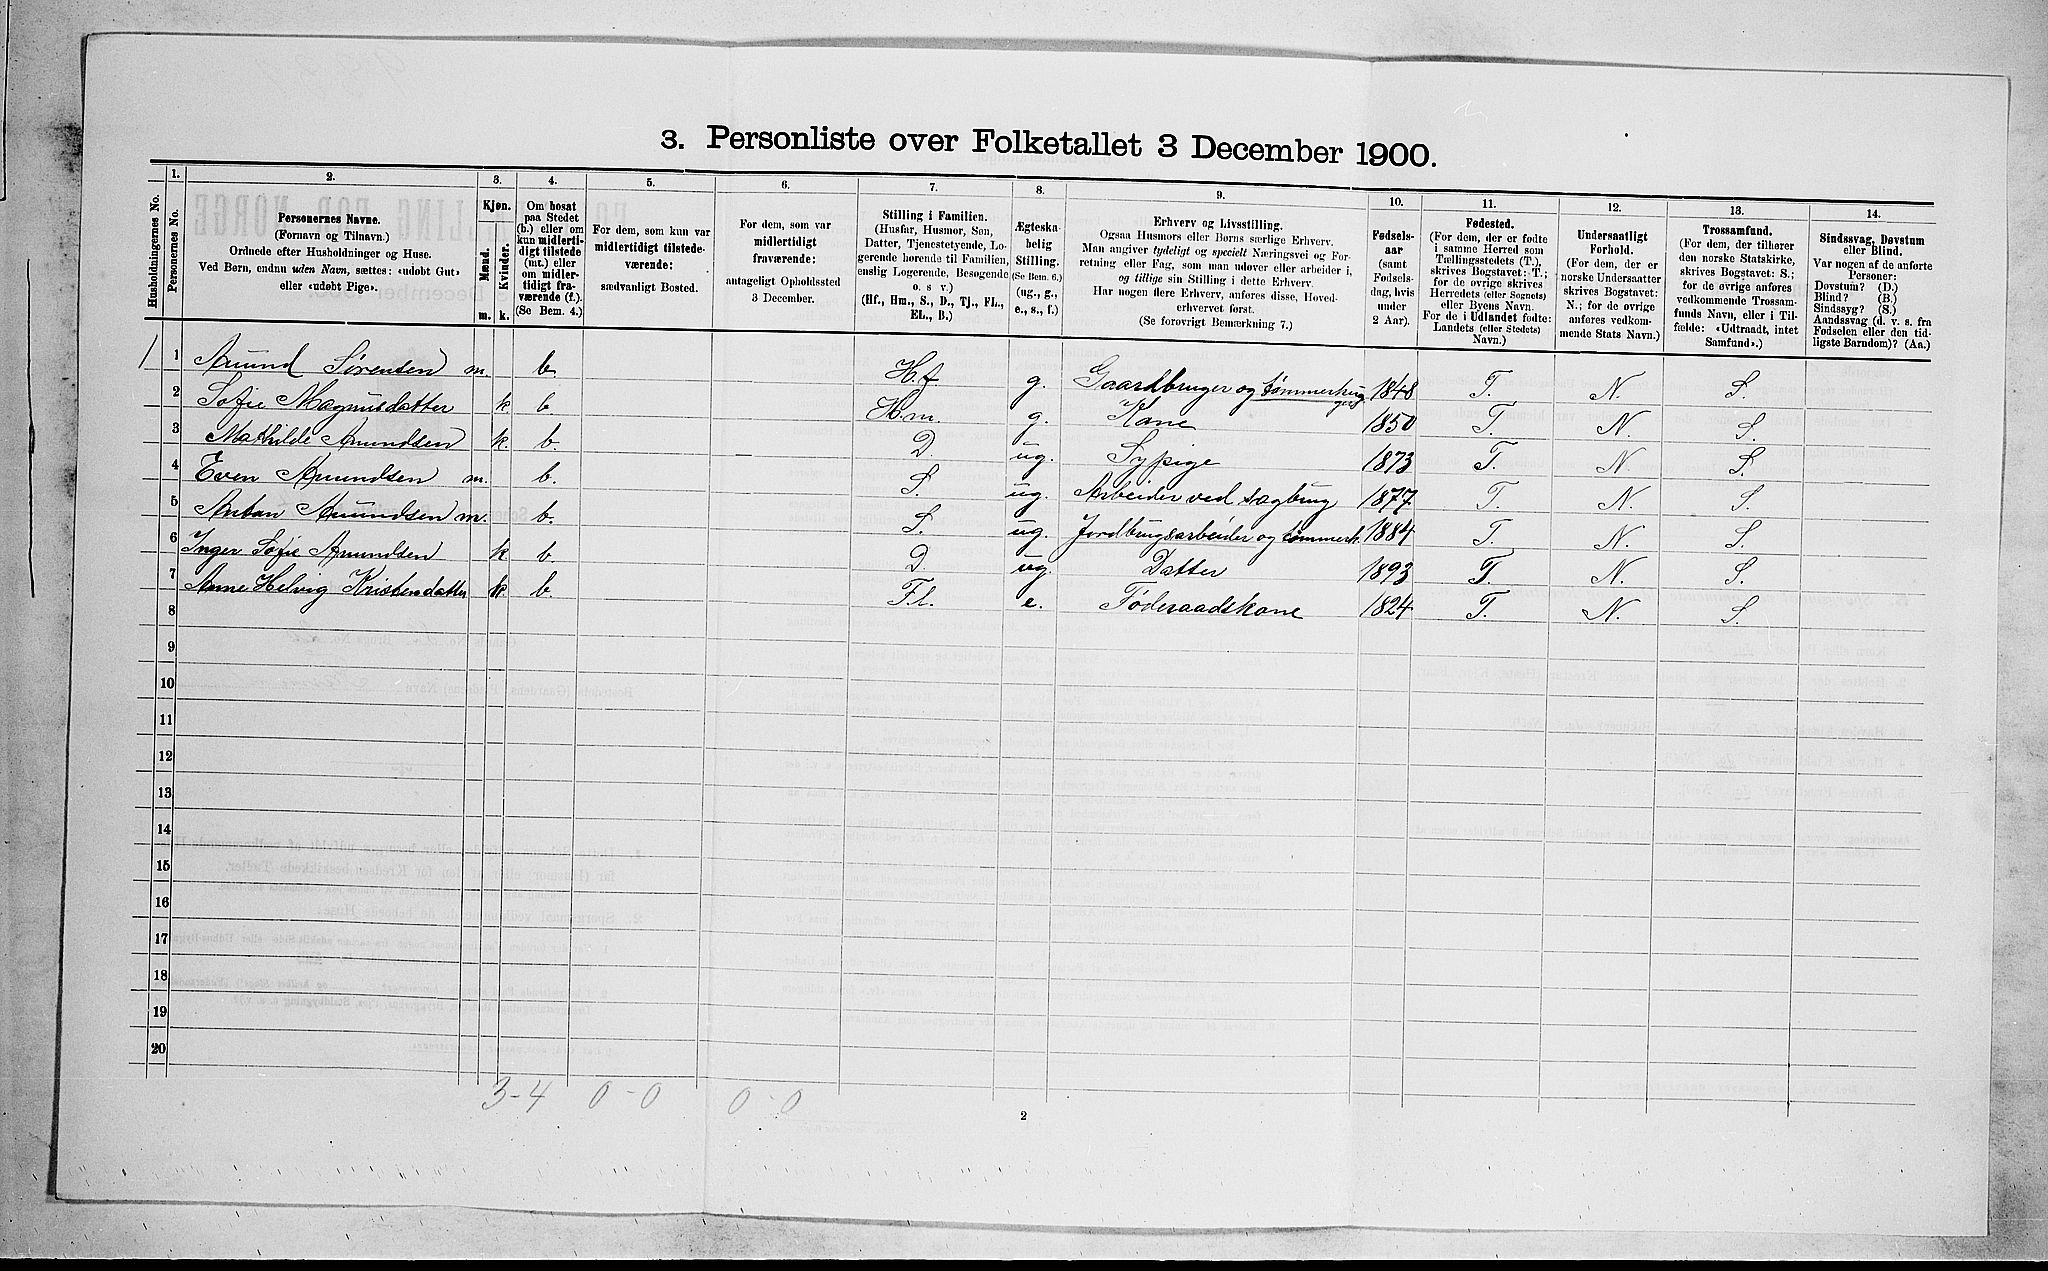 3. Personliste over Folketallet 3 December 1900.
1. 2. 3. 4. 5. 6. 7. 8. 9. 10. 11. 12. 13. 14.
Husholdningernes No.
Personernes No.
Personernes Navne.
(Fornavn og Tilnavn.)
Ordnede efter Husholdninger og Huse.
Ved Børn, endnu uden Navn, sættes: «udøbt Gut»
eller «udøbt Pige».
Kjøn.
Mænd.
Kvinder.
m. k.
Om bosat
paa Stedet
(b.) eller om
kun midlerti-
digt tilstede
(mt.) eller
om midler-
tidigt fra-
værende (f.).
(Se Bem. 4.)
For dem, som kun var
midlertidigt tilstede-
værende:
sædvanligt Bosted.
For dem, som var
midlertidigt
fraværende:
antageligt Opholdssted
3 December.
Stilling i Familien.
(Husfar, Husmor, Søn,
Datter, Tjenestetyende, Lo-
gerende hørende til Familien,
enslig Logerende, Besøgende
o. s v.)
(Hf., Hm., S., D., Tj., FL.,
EL., B.)
Ægteska-
belig
Stilling.
(Se Bem. 6.)
(ug., g.,
e., s., f.)
Erhverv og Livsstilling.
Ogsaa Husmors eller Børns særlige Erhverv.
Man angiver tydeligt og specielt Næringsvei og For-
retning eller Fag, som man udøver eller arbeider i,
og tillige sin Stilling i dette Erhverv.
Har nogen flere Erhverv, anføres disse, Hoved-
erhvervet først.
(Se forøvrigt Bemærkning 7.)
Fødsels-
aar
(samt
Fødsels-
dag, hvis
under
2 Aar).
Fødested.
(For dem, der er fødte
i samme Herred som
Tællingsstedets (T.),
skrives Bogstavet: T.;
for de øvrige skrives
Herredets (eller Sognets)
eller Byens Navn.
For de i Udlandet fødte:
Landets (eller Stedets)
Navn.)
Undersaatligt
Forhold.
(For dem, der er
norske Undersaatter
skrives Bogstavet:
N.; for de øvrige
anføres vedkom-
mende Stats Navn.)
Trossamfund.
(For dem, der tilhører
den norske Statskirke,
skrives Bogstavet: S.;
for de øvrige anføres
vedkommende Trossam-
funds Navn, eller i Til-
fælde: «Udtraadt, intet
Samfund».)
Sindssvag, Døvstum
eller Blind.
Var nogen af de anførte
Personer:
Døvstum? (D.)
Blind? (B.)
Sindssyg? (S.)
Aandssvag (d. v. s. fra
Fødselen eller den tid-
ligste Barndom)? (Aa.)
1 1 Amund Sørensen m. b. H.f g. Gaardbruger og tømmerhug 1848 T. N. S.
ger
2 Sofie Magnusdatter k b H.m. g. Kone 1850 T. N. S.
3 Mathilde Amundsen k. b. D ug. Sypige 1873 T. N. S.
4 Even Amundsen m. b. S. ug. Arbeider ved sagbrug 1877 T. N. S.
5 Anton Amundsen m. b. S. ug. Jordbrugsarbeider og tømmerh. 1884 T. N. S.
6 Inger Sofie Amundsen k b. D. ug. Datter 1893 T. N. S.
7 Anne Helvig Kristensdatter k b. F.l. e. Føderaadskone 1824 T. N. S.
8
9
10
11
12
13
14
15
16
17
18
19
20
3-4 0-0 0-0
2